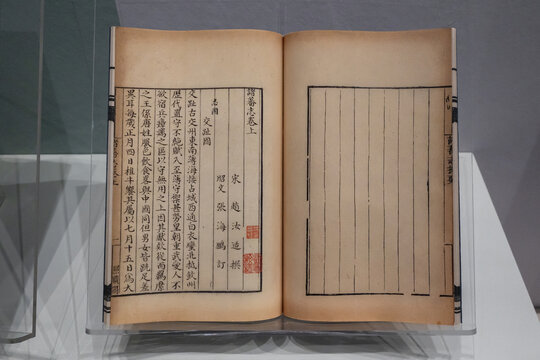 諸蕃志卷上
宋 趙汝适 撰
昭文 張海鵬 訂
志國
交趾國
交趾古交州東南薄海接占城西通白衣蠻北抵欽州
歷代置守不絕賦入至薄守禦甚勞皇朝重武愛人不
欲宿兵瘴癘之區以守無用之土因其獻欵從而羈縻
之王係唐姓服色飲食畧與中國同但男女皆跣足差
異耳每歲正月四日椎牛饗其屬以七月十五日為大
諸蕃志卷上
一